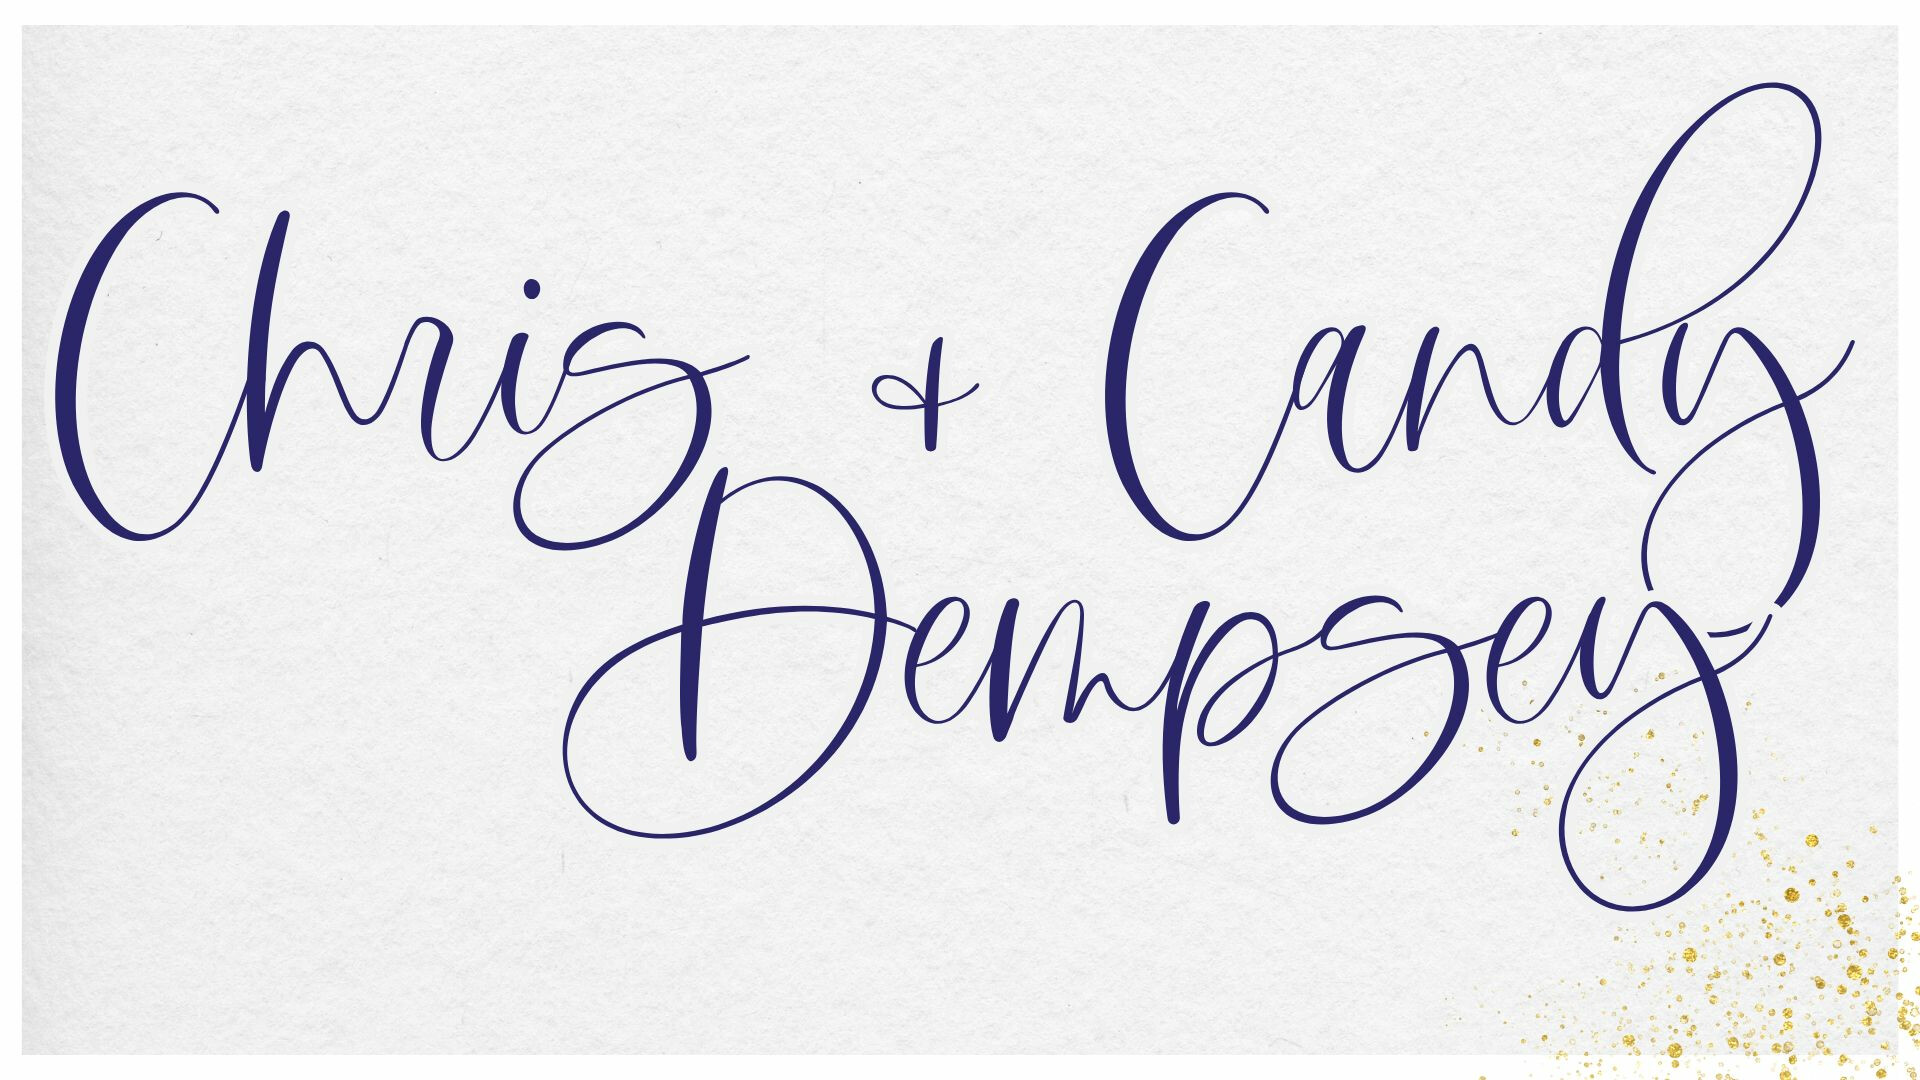 Chris + Candy
Dempsey